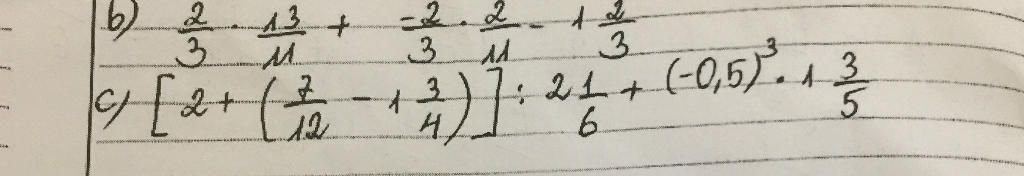 b) 2/3 · 13/11 + -2/3 · 2/11 - 1 2/3
c) [2 + (7/12 - 1 3/4)] : 2 1/6 + (-0,5)³ · 1 3/5